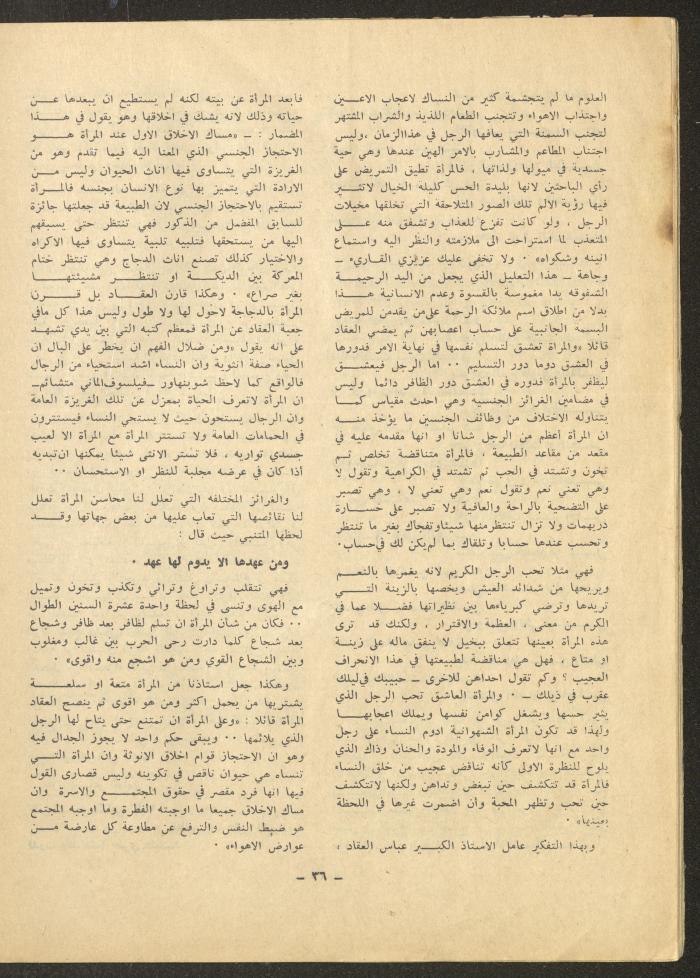 العلوم ما لم يتجشمة كثير من النساك لاعجاب الاعين
واجتذاب الاهواء وتتجنب الطعام اللذيذ والشراب المشتهر
لتجنب السمنة التي يعافها الرجل في هذا الزمان ،وليس
اجتناب المطاعم والمشارب بالامر الهين عندها وهي حية
جسدية في ميولها ولذاتها ، فالمرأة تطيق التمريض على
رأي الباحثين لانها بليدة الحس كليلة الخيال لاتثير
فيها رؤية الالم تلك الصور المتلاحقة التي تخلقها مخيلات
الرجل ، ولو كانت تفزع للعذاب وتشفق منه على
المتعذب لما استراحت الى ملازمته والنظر اليه واستماع
انينه وشكواه» ٠ ولا تخفى عليك عزيزي القاريء ــ
وجاهة ــ هذا التعليل الذي يجعل من اليد الرحيمة
الشفوقه يدا مغموسة بالقسوة وعدم الانسانية هذا
بدلا من اطلاق اسم ملائكة الرحمة على من يقدمن للمريض
البسمة الجانبية على حساب اعصابهن ثم يمضي العقاد
قائلا «والمراة تعشق لتسلم نفسها في نهاية الامر فدورها
في العشق دوما دور التسليم ٠٠ اما الرجل فيعشق
ليظفر بالمرأة فدوره في العشق دور الظافر دائما وليس
في مضامين الغرائز الجنسيه وهي احدث مقياس كما
يتناوله الاختلاف من وظائف الجنسين ما يؤخذ منه
ان المرأة أعظم من الرجل شانا او انها مقدمه عليه في
مقعد من مقاعد الطبيعة ، فالمرأة متناقضة تخلص ثم
تخون وتشتد في الحب ثم تشتد في الكراهية وتقول لا
وهي تعني نعم وتقول نعم وهي تعني لا ، وهي تصبر
على التضحية بالراحة والعافية ولا تصبر على خسارة
دريهمات ولا تزال تنتظر منها شيئاوتفجاك بغير ما تنتظر
وتحسب عندها حسابا وتلقاك بما لم يكن لك في حساب٠
فهي مثلا تحب الرجل الكريم لانه يغمرها بالنعم
ويريحها من شدائد العيش ويخصها بالزينة التي
تريدها وترضي كبرياءها بين نظيراتها فضلا عما في
الكرم من معنى ، العظمة والاقتدار ، ولكنك قد ترى
هذه المرأة بعينها تتعلق ببخيل لا ينفق ماله على زينة
او متاع ، فهل هي مناقضة لطبيعتها في هذا الانحراف
العجيب ؟ وكم تقول احداهن للاخرى ــ حبيبك في ليلك
عقرب في ذيلك ــ ٠ والمرأة العاشق تحب الرجل الذي
يثير حسها ويشغل كوامن نفسها ويملك اعجابها
ولهذا قد تكون المرأة الشهوانية ادوم النساء على رجل
واحد مع انها لاتعرف الوفاء والمودة والحنان وذاك الذي
يلوح للنظرة الاولى كأنه تناقض عجيب من خلق النساء
فالمرأة قد تتكشف حين تبغض وتداهن ولكنها لاتتكشف
حين تحب وتظهر المحبة وأن اضمرت غيرها في اللحظة
بعينها» ٠
وبهذا التفكير عامل الاستاذ الكبير عباس العقاد ،
فأبعد المرأة عن بيته لكنه لم يستطيع ان يبعدها عن
حياته وذلك لانه يشك في اخلاقها وهو يقول في هذا
المضمار : ــ «مساك الاخلاق الاول عند المرأة هو
الاحتجاز الجنسي الذي المعنا اليه فيما تقدم وهو من
الغريزة التي يتساوى فيها اناث الحيوان وليس من
الارادة التي يتميز بها نوع الانسان بجنسه فالمرأة
تستقيم بالاحتجاز الجنسي لان الطبيعة قد جعلتها جائزة
للسابق المفضل من الذكور فهي تنتظر حتى يسبقهم
اليها من يستحقها فتلبيه تلبية يتساوى فيها الاكراه
والاختيار كذلك تصنع اناث الدجاج وهي تنتظر ختام
المعركة بين الديكة او تنتظر مشيئتها
بغير صراع» ٠ وهكذا قارن العقاد بل قرن
المرأة بالدجاجة لاحول لها ولا طول وليس هذا كل مافي
جعبة العقاد عن المرأة فمعظم كتبه التي بين يدي تشهد
على انه يقول «ومن ضلال الفهم ان يخطر على البال ان
الحياء صفة انثوية وان النساء اشد استحياء من الرجال
فالواقع كما لاحظ شوبنهاور ــفيلسوف الماني متشائمــ
ان المرأة لاتعرف الحياة بمعزل عن تلك الغريزة العامة
وان الرجال يستحون حيث لا يستحي النساء فيستترون
في الحمامات العامة ولا تستتر المرأة مع المرأة الا لعيب
جسدي تواريه ، فلا تستر الانثى شيئا يمكنها ان تبديه
أذا كان في عرضه مجلبة للنظر او الاستحسان ٠٠
والغرائز المختلفه التي تعلل لنا محاسن المرأة تعلل
لنا نقائصها التي تعاب عليها من بعض جهاتها وقد
لحظها المتنبي حيث قال :
ومن عهدها الا يدوم لها عهد ٠
فهي تتقلب وتراوغ وترائي وتكذب وتخون وتميل
مع الهوى وتنسى في لحظة واحدة عشرة السنين الطوال
٠٠ فكان من شأن المرأة ان تسلم لظافر بعد ظافر وشجاع
بعد شجاع كلما دارت رحى الحرب بين غالب ومغلوب
وبين الشجاع القوي ومن هو اشجع منه واقوى» ٠
وهكذا جعل استاذنا من المرأة متعة او سلعة
يشتريها من يحمل اكثر ومن هو اقوى ثم ينصح العقاد
المرأة قائلا : «وعلى المرأة ان تمتنع حتى يتاح لها الرجل
الذي يلائمها ٠٠ ويبقى حكم واحد لا يجوز الجدال فيه
وهو ان الاحتجاز قوام اخلاق الانوثة وان المرأة التي
تنساه هي حيوان ناقص في تكوينه وليس قصارى القول
فيها انها فرد مقصر في حقوق المجتمع والاسرة وان
مساك الاخلاق جميعا ما اوجبته الفطرة وما اوجبه المجتمع
هو ضبط النفس والترفع عن مطاوعة كل عارضة من
عوارض الاهواء» ٠
ــ ٣٦ ــ